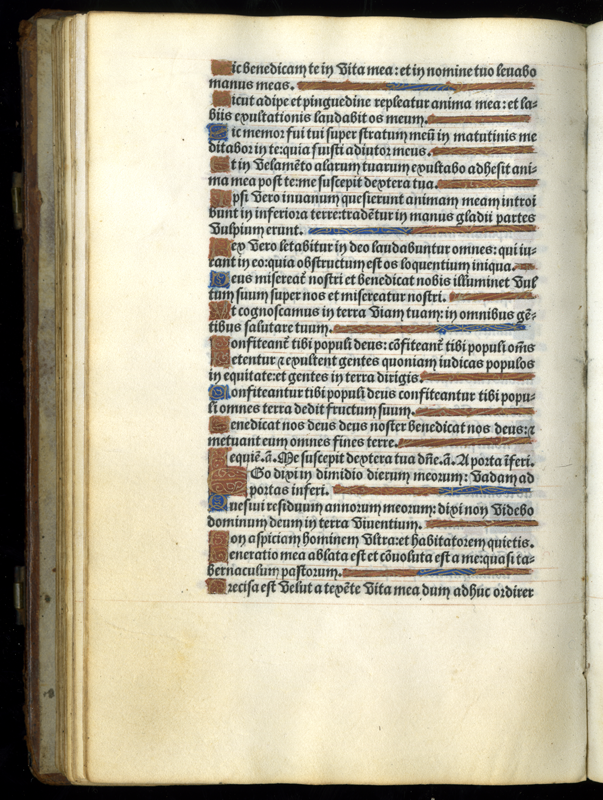 Sic benedicam te in vita mea: et in nomine tuo levabo
manus meas.
Sicut adipe et pinguedine repleatur anima mea: et la-
biis exultationis laudabit os meum.
Sic memor fui tui super stratum meū in matutinis me
ditabor in te: quia fuisti adiutor meus.
Et in velamēto alarum tuarum exultabo adhesit ani-
ma mea post te: me suscepit dextera tua.
Ipsi vero in vanum quesierunt animam meam introi
bunt in inferiora terre: tradētur in manus gladii partes
vulpium erunt.
Rex vero letabitur in deo laudabuntur omnes: qui iu-
rant in eo: quia obstructum est os loquentium iniqua.
Deus misereat̄ nostri et benedicat nobis illuminet vul
tum suum super nos et misereatur nostri.
Ut cognoscamus in terra viam tuam: in omnibus gē-
tibus salutare tuum.
Confiteant̄ tibi populi deus: cōfiteant̄ tibi populi om̄s
Letentur ⁊ exultent gentes quoniam iudicas populos
in equitate: et gentes in terra dirigis.
Confiteantur tibi populi deus confiteantur tibi popu-
li omnes terra dedit fructum suum.
Benedicat nos deus deus noster benedicat nos deus: ⁊
metuant eum omnes fines terre.
Requiē. ā. Me suscepit dextera tua dn̄e. ā. A porta īferi.
EGo dixi in dimidio dierum meorum: vadam ad
portas inferi.
Quesivi residuum annorum meorum: dixi non videbo
dominum deum in terra viventium.
Non aspiciam hominem ultra: et habitatorem quietis.
Generatio mea ablata est et cōvoluta est a me: quasi ta-
bernaculum pastorum.
Precisa est velut a texēte vita mea dum adhuc ordirer